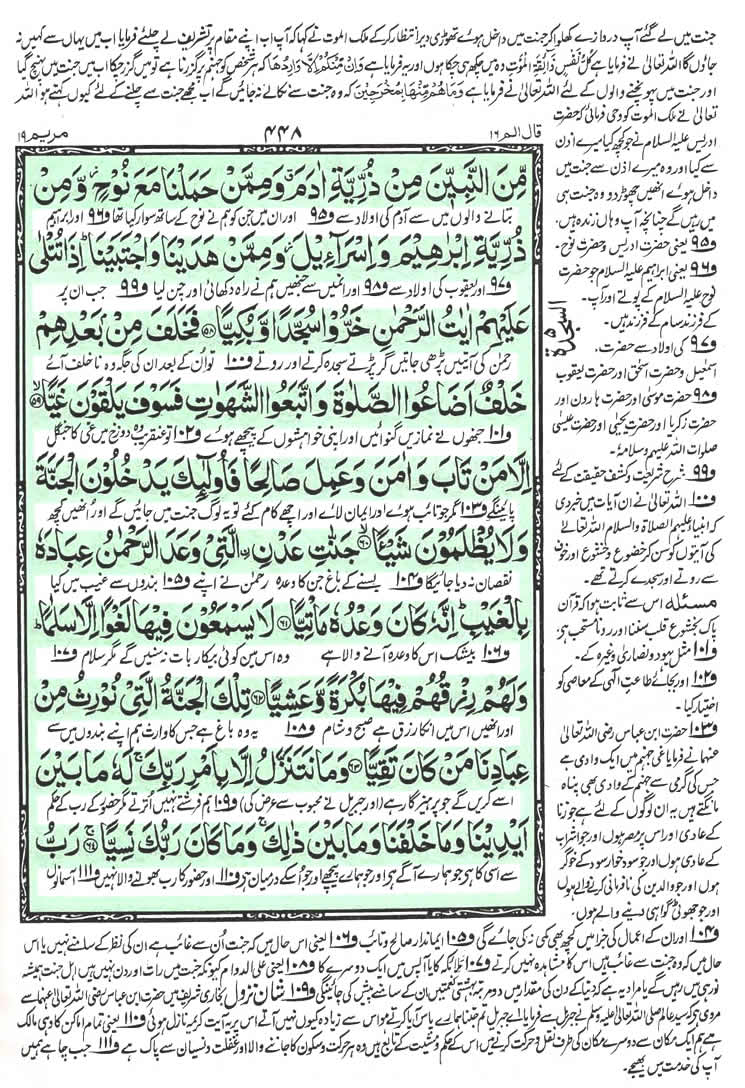 جنت میں لے گئے آپ دروازے کھلوا کر جنت میں داخل ہوئے تھوڑی دیر انتظار کر کے ملک الموت نے کہا کہ آپ اب اپنے مقام پر تشریف لے چلئے فرمایا اب میں یہاں سے کہیں نہ
جاؤں گا اللہ تعالیٰ نے فرمایا ہے كُلُّ نَفْسٍ ذَآئِقَةُ الْمَوْتِ وہ میں چکھ ہی چکا ہوں اور یہ فرمایا ہے وَاِنْ مِّنْكُمْ اِلَّا وَارِدُهَا کہ ہر شخص کو جہنم پر گزرنا ہے تو میں گزر چکا اب میں جنت میں پہنچ گیا
اور جنت میں پہونچنے والوں کے لئے اللہ تعالیٰ نے فرمایا ہے وَمَاهُمْ مِّنْهَا بِمُخْرَجِيْنَ کہ وہ جنت سے نکالے نہ جائیں گے اب مجھے جنت سے چلنے کے لئے کیوں کہتے ہو اللہ
تعالیٰ نے ملک الموت کو وحی فرمائی کہ حضرت
قال الم ۱۶
۴۴۸
مریم ۱۹
ادریس علیہ السلام نے جو کچھ کیا میرے اذن
سے کیا اور وہ میرے اذن سے جنت میں
داخل ہوئے انھیں چھوڑ دو وہ جنت ہی
میں رہیں گے چنانچہ آپ وہاں زندہ ہیں.
و۹۵ یعنی حضرت ادریس و حضرت نوح.
و۹۶ یعنی ابراہیم علیہ السلام جو حضرت
نوح علیہ السلام کے پوتے اور آپ.
کے فرزند سام کے فرزند ہیں.
و۹۷ کی اولاد سے حضرت.
اسمٰعیل و حضرت اسحٰق اور حضرت یعقوب
و۹۸ حضرت موسیٰ اور حضرت ہارون اور
حضرت زکریا اور حضرت یحییٰ اور حضرت عیسیٰ
صلوات اللہ علیہم وسلامہٗ.
و۹۹ شرح شریعت و کشف حقیقت کے لئے
و۱۰۰ اللہ تعالیٰ نے ان آیات میں خبر دی
کہ انبیاء علیہم الصلاۃ والسلام اللہ تعالیٰ
کی آیتوں کو سن کر خضوع و خشوع اور خوف
سے روتے اور سجدے کرتے تھے.
مسئلہ اس سے ثابت ہوا کہ قرآن
پاک بخشوع قلب سننا اور رونا مستحب ہے
و۱۰۱ مثل یہود و نصاریٰ وغیرہ کے.
و۱۰۲ اور بجائے طاعتِ الٰہی کے معاصی کو
اختیار کیا.
و۱۰۳ حضرت ابن عباس رضی اللہ تعالیٰ
عنہما نے فرمایا غی جہنم میں ایک وادی ہے
جس کی گرمی سے جہنم کے وادی بھی پناہ
مانگتے ہیں یہ ان لوگوں کے لئے ہے جو زنا
کے عادی اور اس پر مصر ہوں اور جو شراب
کے عادی ہوں اور جو سود خوار سود کے خوگر
ہوں اور جو والدین کی نافرمانی کرنے والے ہوں
اور جو جھوٹی گواہی دینے والے ہوں.
السجدة ۵
مِّنَ النَّبِيّٖنَ مِنْ ذُرِّيَّةِ اٰدَمَ وَمِمَّنْ حَمَلْنَا مَعَ نُوْحٍ وَّمِنْ
بتانے والوں میں سے آدم کی اولاد سے و۹۵ اور ان میں جن کو ہم نے نوح کے ساتھ سوار کیا تھا و۹۶ اور ابراہیم
ذُرِّيَّةِ اِبْرٰهِيْمَ وَاِسْرَآءِيْلَ وَمِمَّنْ هَدَيْنَا وَاجْتَبَيْنَا اِذَا تُتْلٰى
و۹۷ اور یعقوب کی اولاد سے و۹۸ اور انمیں سے جنھیں ہم نے راہ دکھائی اور چن لیا و۹۹ جب ان پر
عَلَيْهِمْ اٰيٰتُ الرَّحْمٰنِ خَرُّوْا سُجَّدًا وَّبُكِيًّا ۝۵۸ فَخَلَفَ مِنْۢ بَعْدِهِمْ
رحمٰن کی آیتیں پڑھی جاتیں گر پڑتے سجدہ کرتے اور روتے و۱۰۰ تو ان کے بعد ان کی جگہ وہ ناخلف آئے
خَلْفٌ اَضَاعُوا الصَّلٰوةَ وَاتَّبَعُوا الشَّهَوٰتِ فَسَوْفَ يَلْقَوْنَ غَيًّا ۝۵۹
و۱۰۱ جنھوں نے نمازیں گنوائیں اور اپنی خواہشوں کے پیچھے ہوئے و۱۰۲ تو عنقریب وہ دوزخ میں غی کا جنگل
اِلَّا مَنْ تَابَ وَاٰمَنَ وَعَمِلَ صَالِحًا فَاُولٰٓئِكَ يَدْخُلُوْنَ الْجَنَّةَ
پائینگے و۱۰۳ مگر جو تائب ہوئے اور ایمان لائے اور اچھے کام کئے تو یہ لوگ جنت میں جائیں گے اور انھیں کچھ
وَلَا يُظْلَمُوْنَ شَيْئًا ۝۶۰ جَنّٰتِ عَدْنِ اِلَّتِيْ وَعَدَ الرَّحْمٰنُ عِبَادَهٗ
نقصان نہ دیا جائیگا و۱۰۴ بسنے کے باغ جن کا وعدہ رحمٰن نے اپنے و۱۰۵ بندوں سے غیب میں کیا
بِالْغَيْبِ اِنَّهٗ كَانَ وَعْدُهٗ مَاْتِيًّا ۝۶۱ لَا يَسْمَعُوْنَ فِيْهَا لَغْوًا اِلَّا سَلٰمًا
و۱۰۶ بیشک اس کا وعدہ آنے والا ہے وہ اس میں کوئی بیکار بات نہ سنیں گے مگر سلام و۱۰۷
وَلَهُمْ رِزْقُهُمْ فِيْهَا بُكْرَةً وَّعَشِيًّا ۝۶۲ تِلْكَ الْجَنَّةُ الَّتِيْ نُوْرِثُ مِنْ
اور انھیں اس میں انکا رزق ہے صبح و شام و۱۰۸ یہ وہ باغ ہے جس کا وارث ہم اپنے بندوں میں سے
عِبَادِنَا مَنْ كَانَ تَقِيًّا ۝۶۳ وَمَا نَتَنَزَّلُ اِلَّا بِاَمْرِ رَبِّكَ لَهٗ مَا بَيْنَ
اسے کریں گے جو پرہیزگار ہے (اور جبریل نے محبوب سے عرض کی) و۱۰۹ ہم فرشتے نہیں اُترتے مگر حضور کے رب کے حکم
اَيْدِيْنَا وَمَا خَلْفَنَا وَمَا بَيْنَ ذٰلِكَ وَمَا كَانَ رَبُّكَ نَسِيًّا ۝۶۴ رَبُّ
سے اسی کا ہے جو ہمارے آگے ہے اور جو ہمارے پیچھے اور جو اسکے درمیان ہے و۱۱۰ اور حضور کا رب بھولنے والا نہیں و۱۱۱ آسمانوں
و۱۰۴ اور ان کے اعمال کی جزا میں کچھ بھی کمی نہ کی جائے گی و۱۰۵ ایماندار صالح و تائب و۱۰۶ یعنی اس حال میں کہ جنت اُن سے غائب ہے ان کی نظر کے سامنے نہیں یا اس
حال میں کہ وہ جنت سے غائب ہیں اس کا مشاہدہ نہیں کرتے و۱۰۷ ملائکہ کا یا آپس میں ایک دوسرے کا و۱۰۸ یعنی علی الدوام کیونکہ جنت میں رات اور دن نہیں ہیں اہل جنت ہمیشہ
نور ہی میں رہیں گے یا مراد یہ ہے کہ دنیا کے دن کی مقدار میں دو مرتبہ بہشتی نعمتیں ان کے سامنے پیش کی جائینگی و۱۰۹ شان نزول بخاری شریف میں حضرت ابن عباس رضی اللہ تعالیٰ عنہما سے
مروی ہے کہ سید عالم صلی اللہ تعالیٰ علیہ وسلم نے جبریل سے فرمایا اے جبریل تم جتنا ہمارے پاس آیا کرتے ہو اس سے زیادہ کیوں نہیں آتے اس پر یہ آیت کریمہ نازل ہوئی و۱۱۰ یعنی تمام اماکن کا وہی مالک
ہے ہم ایک مکان سے دوسرے مکان کی طرف نقل و حرکت کرنے میں اس کے حکم و مشیت کے تابع ہیں وہ ہر حرکت و سکون کا جاننے والا اور غفلت و نسیان سے پاک ہے و۱۱۱ جب چاہے ہمیں
آپ کی خدمت میں بھیجے.